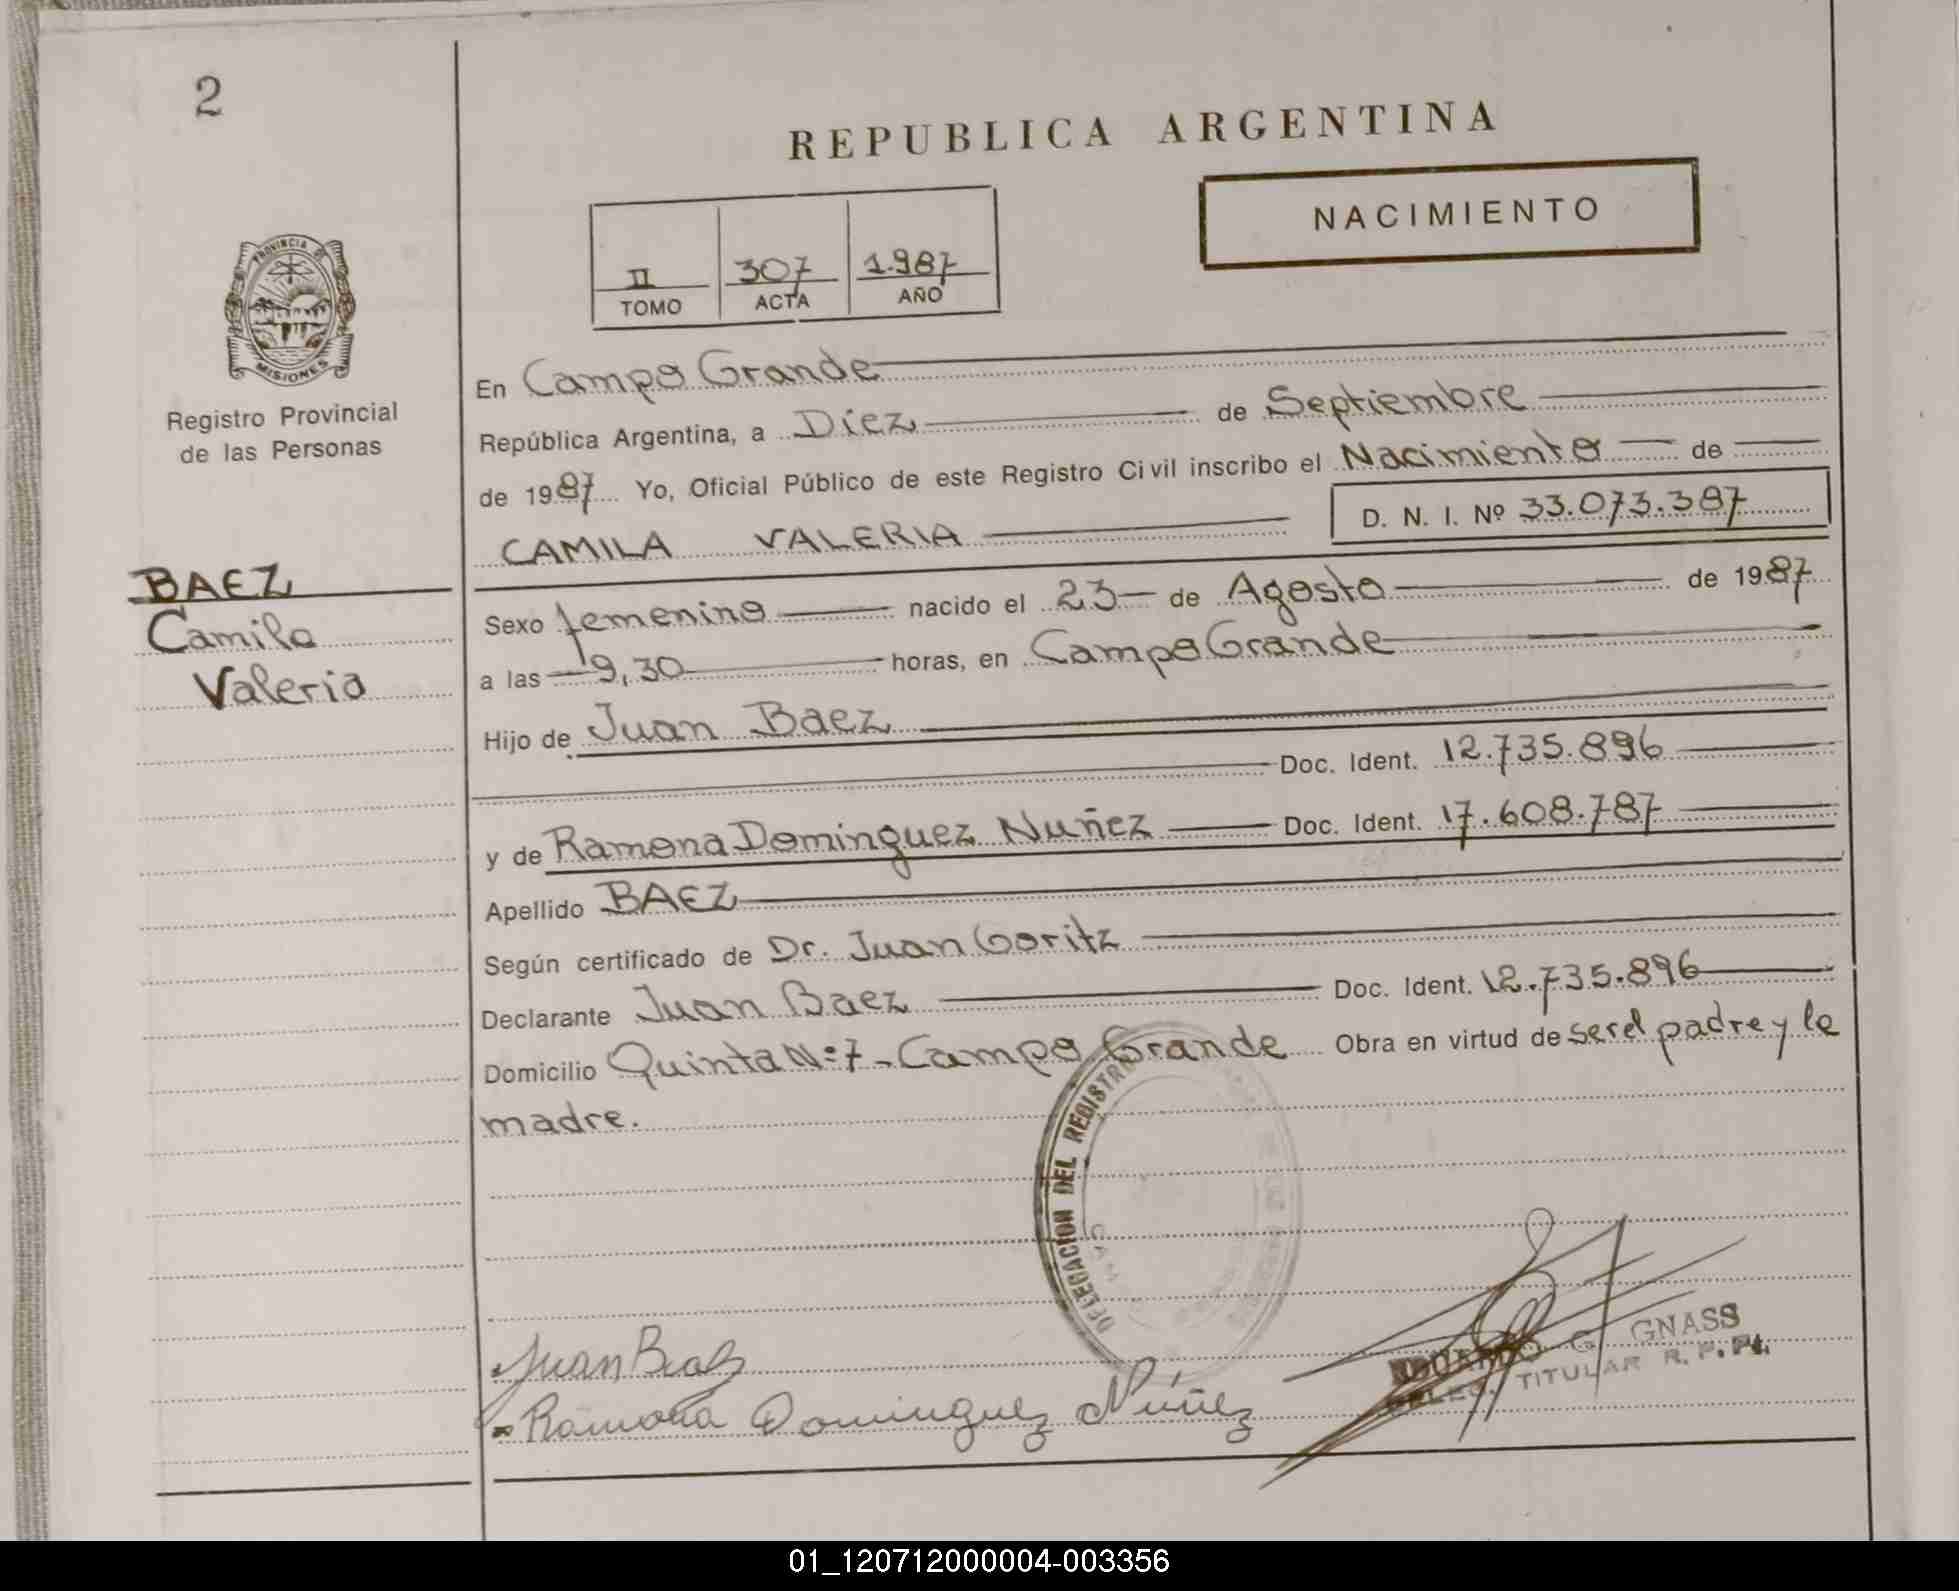 2
REPUBLICA ARGENTINA
NACIMIENTO
II 307 1.987
TOMO ACTA AÑO
PROVINCIA DE
MISIONES
Registro Provincial
de las Personas
En Campo Grande
República Argentina, a Diez de Septiembre
de 1987 Yo, Oficial Público de este Registro Civil inscribo el Nacimiento de
CAMILA VALERIA D. N. I. Nº 33.073.387
BAEZ
Camila
Valeria
Sexo femenino nacido el 23 de Agosto de 1987
a las 19,30 horas, en Campo Grande
Hijo de Juan Baez
Doc. Ident. 12.735.896
y de Ramona Dominguez Nuñez Doc. Ident. 17.608.787
Apellido BAEZ
Según certificado de Dr. Juan Goritz
Declarante Juan Baez Doc. Ident. 12.735.896
Domicilio Quinta Nº 7 - Campo Grande Obra en virtud de ser el padre y la
madre.
DELEGACION DEL REGISTRO
Juan Baez
Ramona Dominguez Núñez
EDUARDO G. GNASS
DELEG. TITULAR R. P. P.
01_120712000004-003356